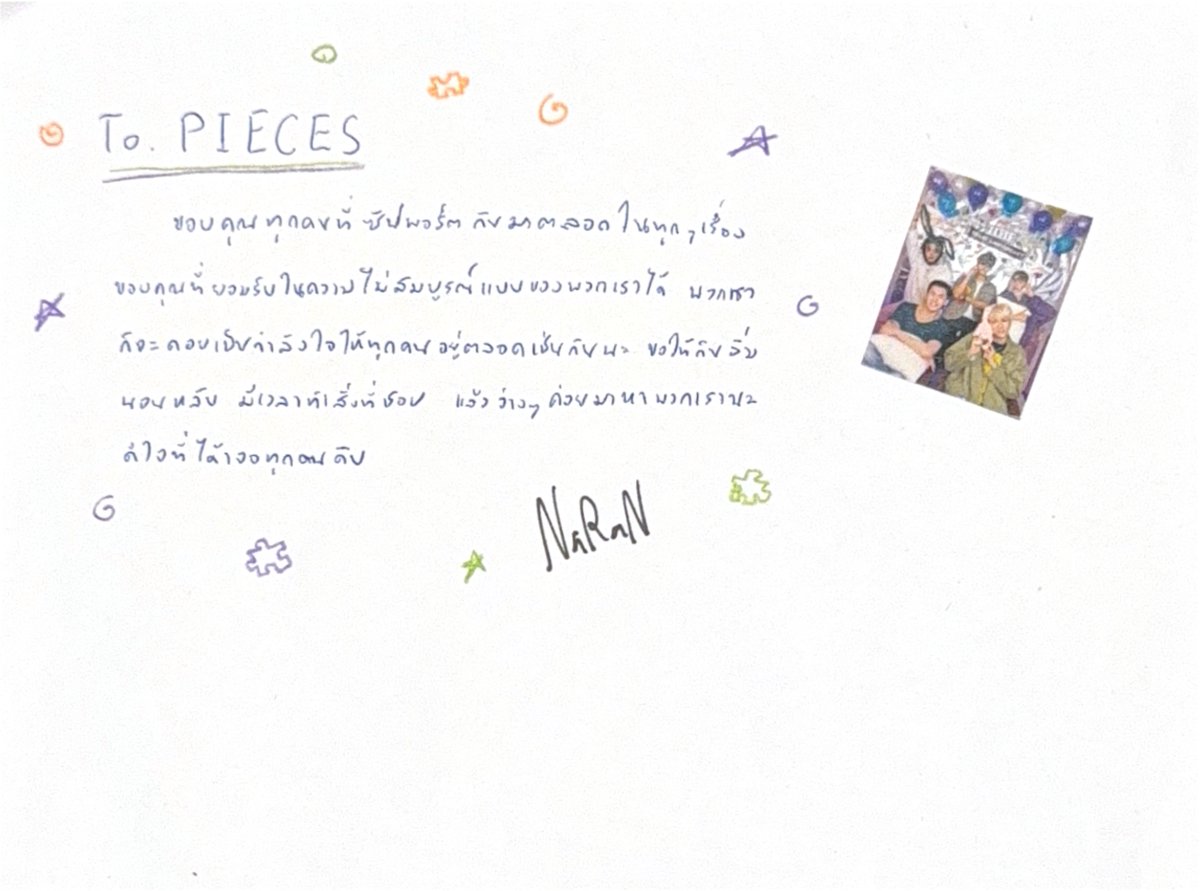 To. PIECES
ขอบคุณทุกคนที่ ซัปพอร์ต กันมาตลอด ในทุกๆเรื่อง
ขอบคุณที่ยอมรับในความไม่สมบูรณ์แบบของพวกเราได้ พวกเรา
ก็จะคอยเป็นกำลังใจให้ทุกคนอยู่ตลอดเช่นกันนะ ขอให้กินอิ่ม
นอนหลับ มีเวลาทำสิ่งที่ชอบ แล้วว่างๆค่อยมาหาพวกเรานะ
ดีใจที่ได้เจอทุกคนคับ
NaRaN